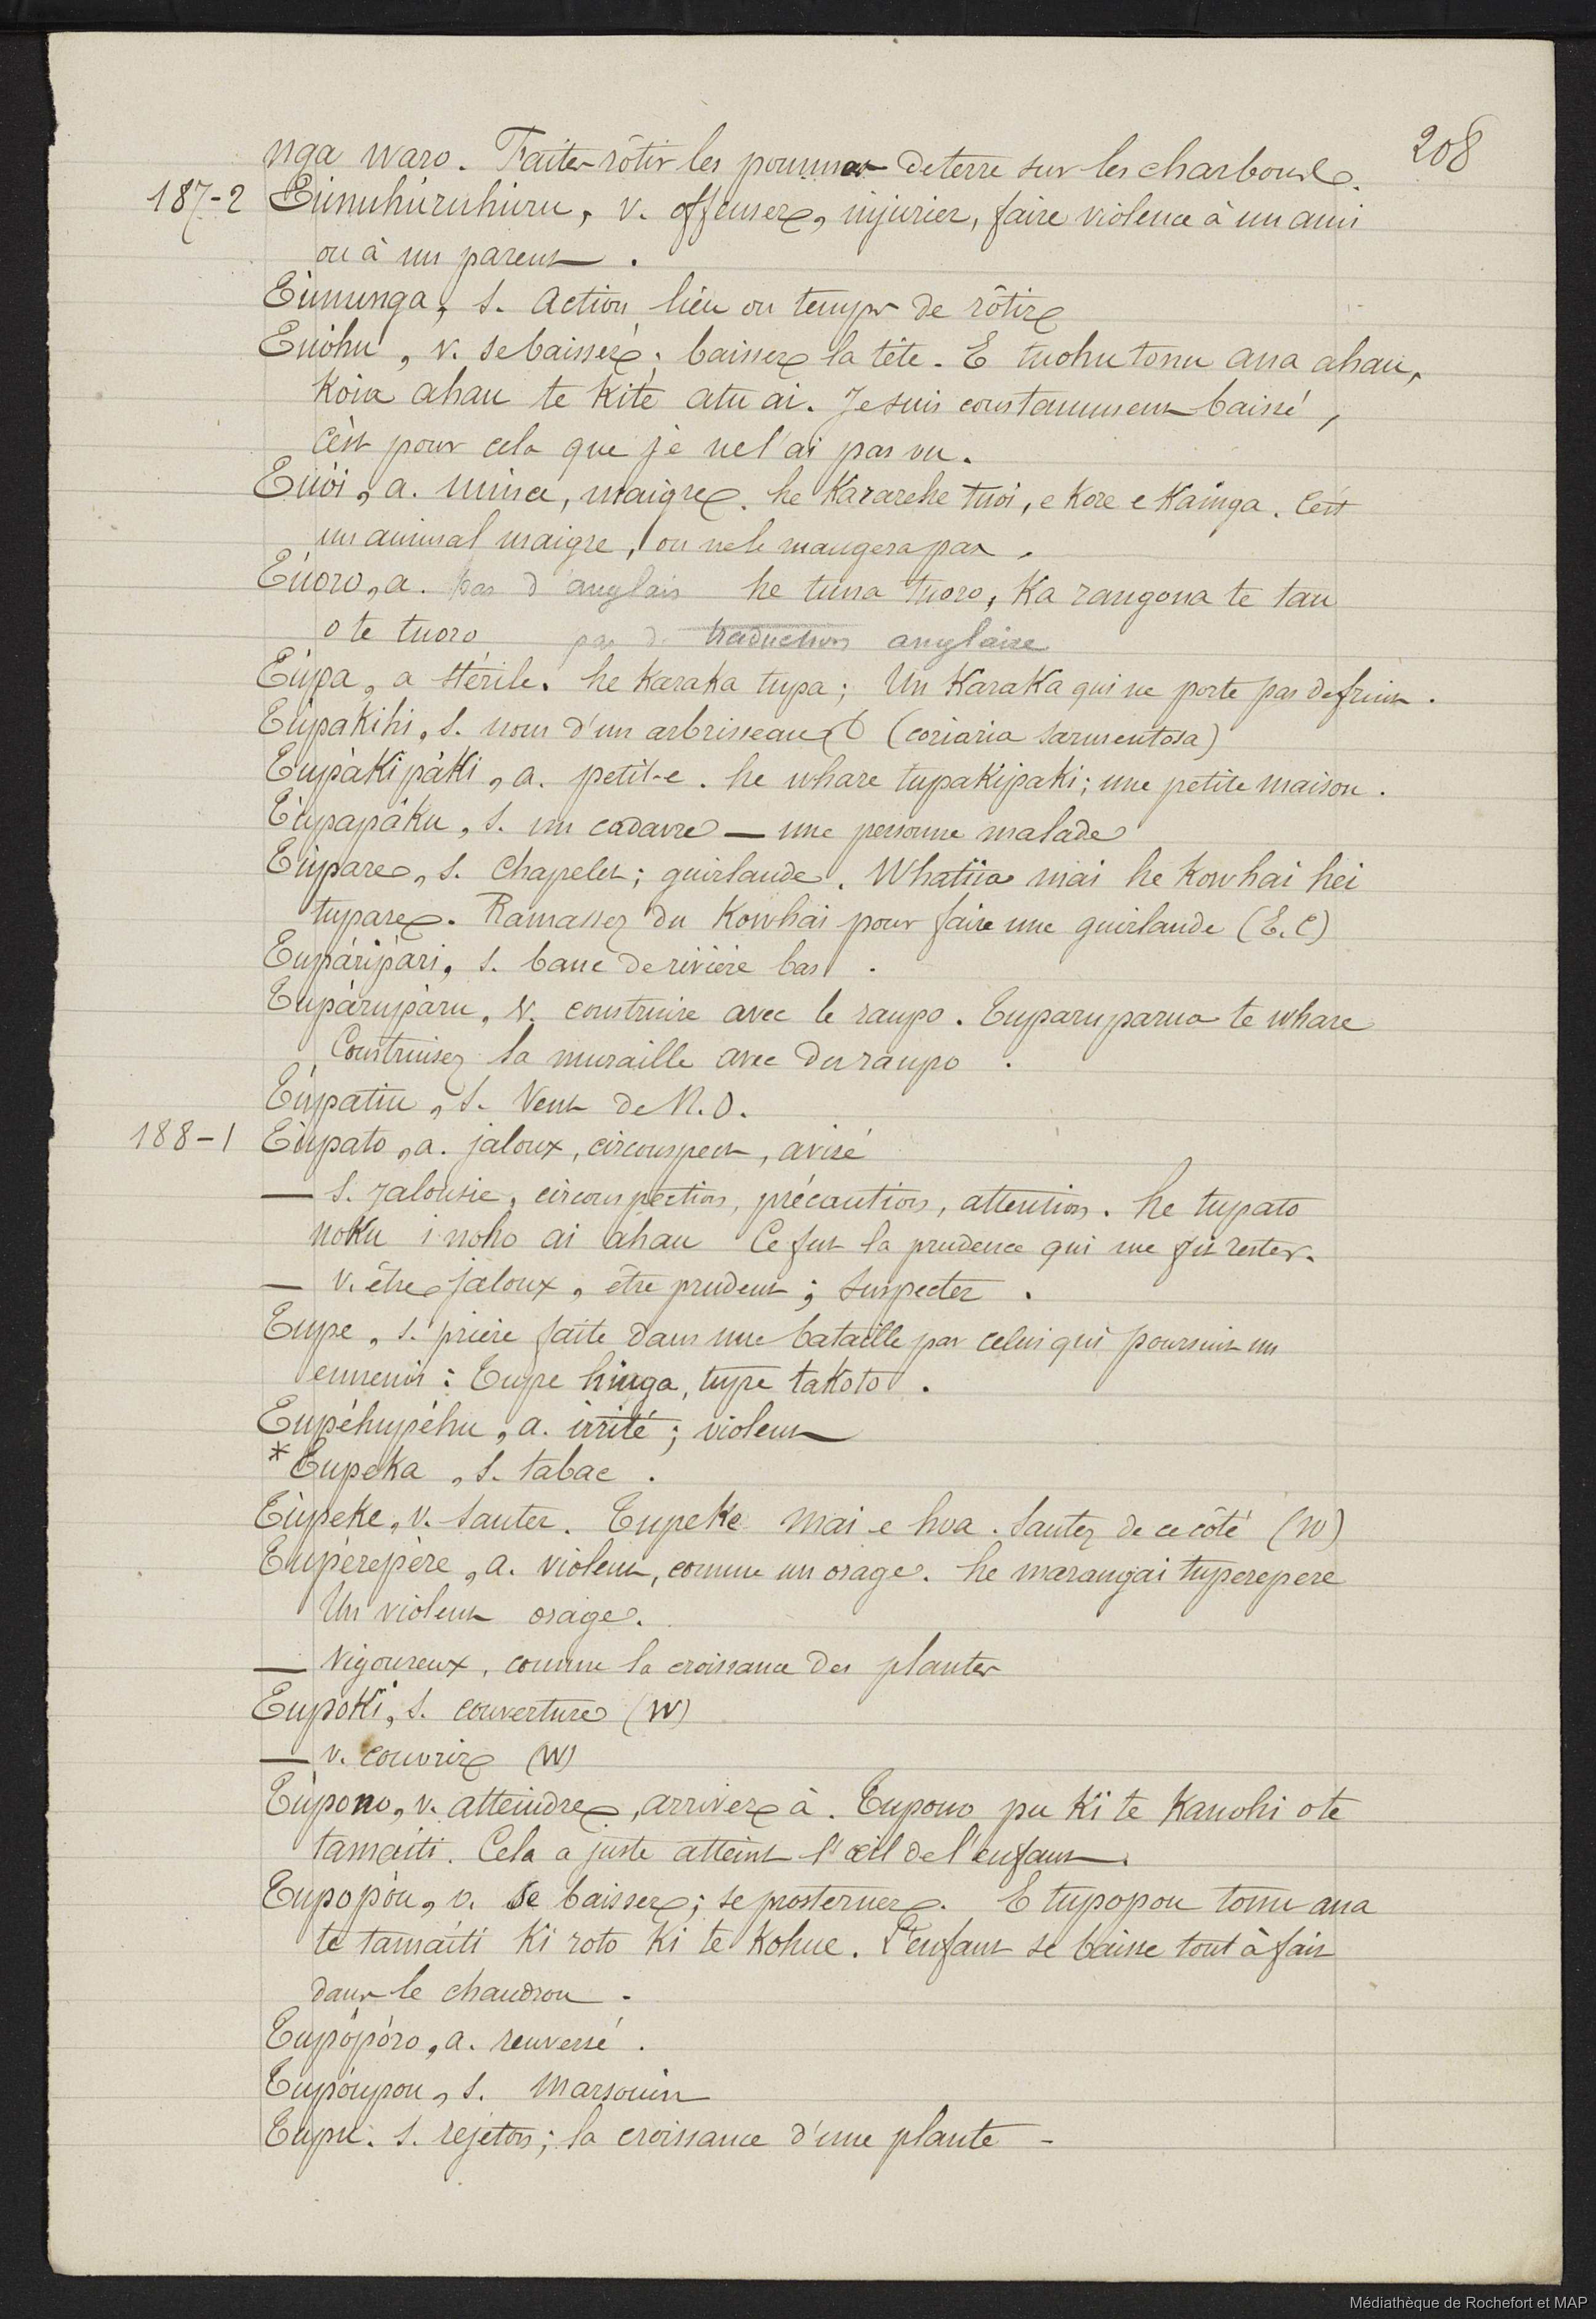 208
nga waro. Faites rôtir les pommes de terre sur les charbons.
187-2 Túnuhúruhúru, v. offenser, injurier, faire violence à un ami
ou à un parent.
Túnunga, s. Action, lieu ou temps de rôtir
Tuóhu, v. se baisser; baisser la tête. E tuohu tonu ana ahau,
Koia ahau te Kite atu ai. Je suis constamment baissé,
c'est pour cela que je ne l'ai pas vu.
Tuòi, a. mince, maigre. he Kararehe tuoi, e Kore e Kainga. C'est
un animal maigre, on ne le mangera pas.
Túoro, a. pas d'anglais he tuna tuoro, Ka rangona te tau
o te tuoro pas de traduction anglaise
Túpa, a stérile. he Karaka tupa; Un Karaka qui ne porte pas de fruit.
Túpakihi, s. nom d'un arbrisseau (coriaria sarmentosa)
Tupàkipàki, a. petit-e. he whare tupakipaki; une petite maison.
Túpapáku, s. un cadavre — une personne malade
Túpare, s. Chapelet; guirlande. Whatiia mai he Kowhai hei
tupare. Ramassez du Kowhai pour faire une guirlande (E.C)
Tupáripári, s. banc de rivière bas.
Tupàrupàru, v. construire avec le raupo. Tuparuparua te whare
Construisez la muraille avec du raupo.
Túpatiu, s. Vent de N.O.
188-1 Túpato, a. jaloux, circonspect, avisé
— s. Jalousie, circonspection, précaution, attention. he tupato
noku i noho ai ahau Ce fut la prudence qui me fit rester.
— v. être jaloux, être prudent; suspecter.
Tupe, s. prière faite dans une bataille par celui qui poursuit un
ennemi: Tupe hinga, tupe takoto.
Tupéhupéhu, a. irrité; violent
* Tupeka, s. tabac.
Tùpeke, v. sauter. Tupeke mai e hoa. Sautez de ce côté (W)
Tupèrepère, a. violent, comme un orage. he marangai tuperepere
Un violent orage.
— Vigoureux, comme la croissance des plantes
Tupoki, s. couverture (W)
— v. couvrir (W)
Túpono, v. atteindre, arriver à. Tupono pu Ki te Kanohi o te
tamaiti. Cela a juste atteint l'œil de l'enfant.
Tupopòu, v. se baisser; se prosterner. E tupopou tonu ana
te tamaiti Ki roto Ki te Kohue. L'enfant se baisse tout à fait
dans le chaudron.
Tupòpóro, a. renversé.
Tupóupou, s. Marsouin
Tupu. s. rejeton; la croissance d'une plante -
Médiathèque de Rochefort et MAP